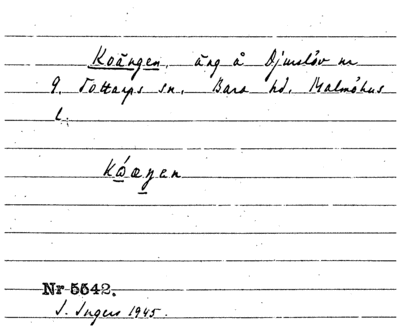 Koängen, äng å Djurslöv nr
9. Tottarps sn, Bara hd, Malmöhus
l.
Kóæŋen
Nr 5542.
I. Ingers 1945.